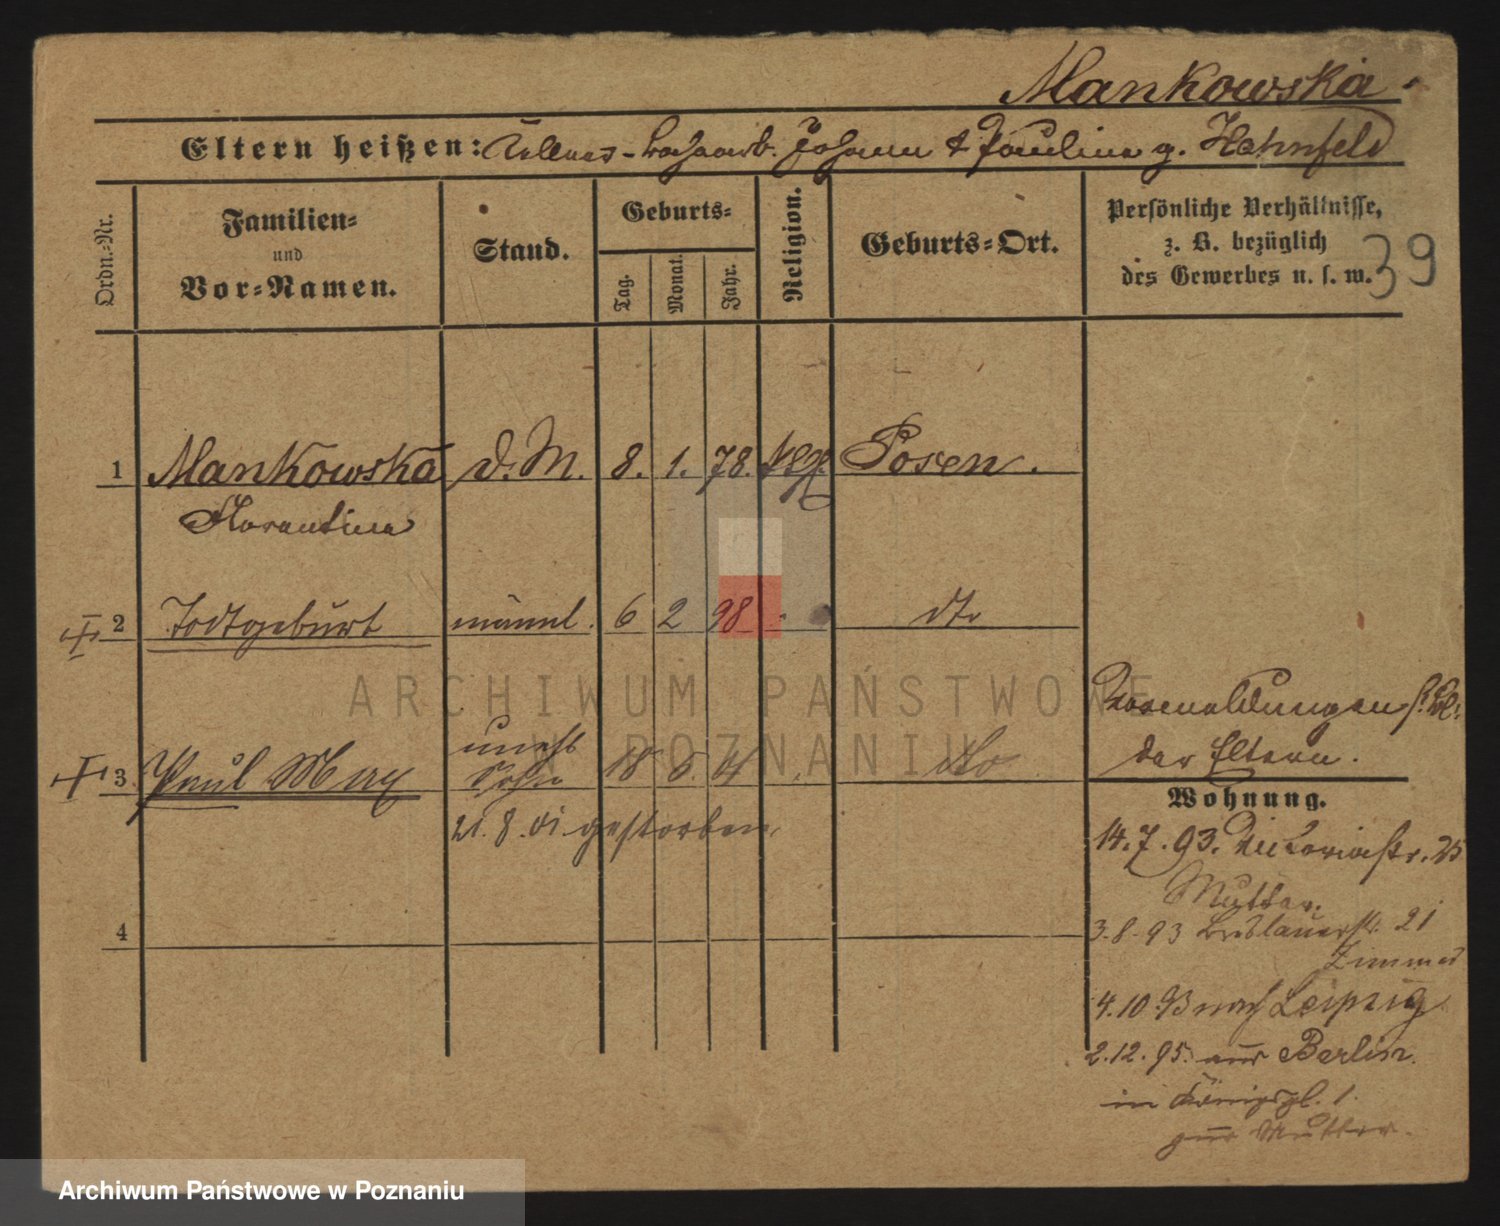 Mankowska
Eltern heißen: Johann & Paulina g. Hahnfeld
Ordn.-Nr.
Familien-
und
Vor-Namen.
Stand.
Geburts-
Tag.
Monat.
Jahr.
Religion.
Geburts-Ort.
Persönliche Verhältnisse,
z. B. bezüglich
des Gewerbes u. s. w.
39
1 Mankowska d. M. 8. 1. 78. Posen.
Florentina
2 Todtgeburt männl. 6 2 98 dto
3 Paul Max unehl. Sohn 18 4 dto
21. 8. 01 gestorben.
4
der Eltern.
Wohnung.
14. 7. 93. Victoriastr. 25
Mutter.
3. 8. 93 Breslauerstr. 21
4. 10. 93 nach Leipzig
2. 12. 95. aus Berlin.
in Königspl. 1.
zur Mutter.
ARCHIWUM PAŃSTWOWE
W POZNANIU
Archiwum Państwowe w Poznaniu